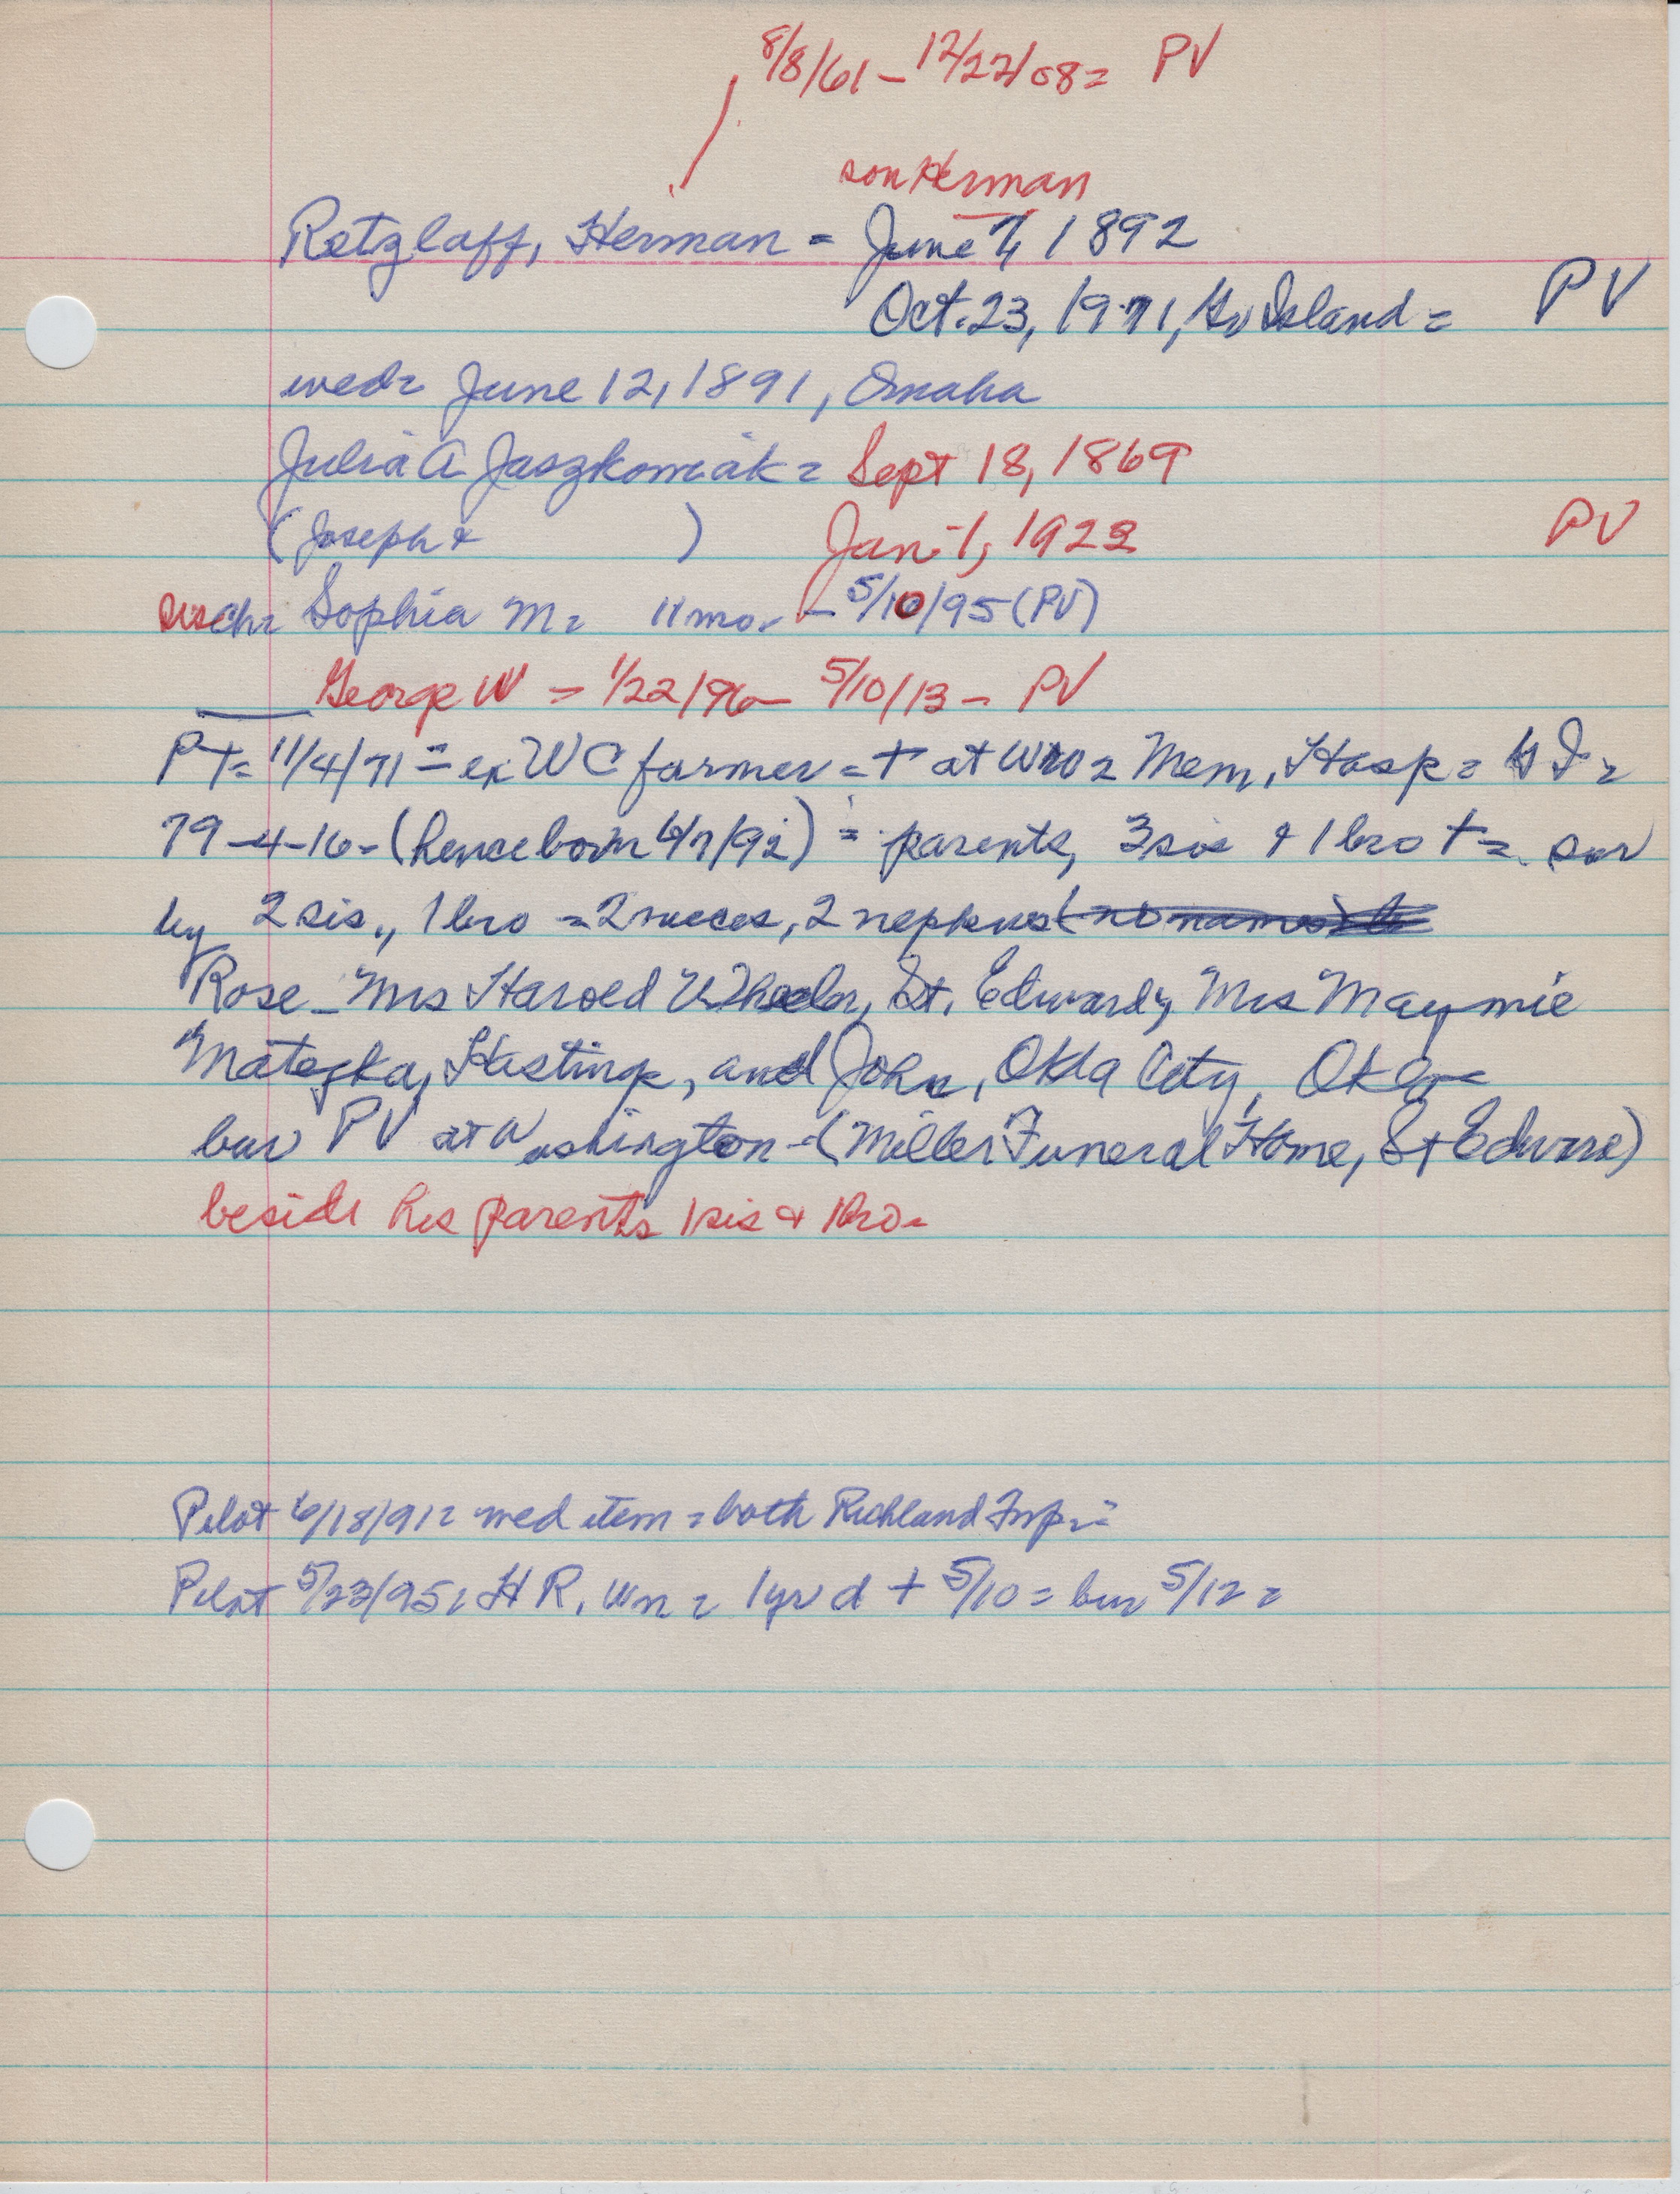 8/8/61 - 12/22/08 = PV
son Herman
Retzlaff, Herman = June 7, 1892
Oct. 23, 1971, Gr Island = PV
wed = June 12, 1891, Omaha
Julia A Jaszkowiak = Sept 18, 1869
(Joseph & ) Jan. 1, 1922 PV
ch = Sophia M = 11 mo. - 5/10/95 (PV)
George W = 1/22/96 - 5/10/13 - PV
PT = 11/4/71 = ex WC farmer = + at Mem. Hosp = G I =
79-4-16 - (hence born 6/7/92) = parents, 3 sis & 1 bro + = sur
by 2 sis., 1 bro = 2 nieces, 2 nephews (no names)
Rose - Mrs Harold Wheeler, St. Edward, Mrs Maymie
Matejka, Hastings, and John, Okla City, Okla =
bur PV at Washington - (Miller Funeral Home, St Edward)
beside his parents 1 sis & 1 bro =
Pilot 6/18/91 = wed item = both Richland Twp =
Pilot 5/23/95 = H R. Wn = 1 yr d + 5/10 = bur 5/12 =